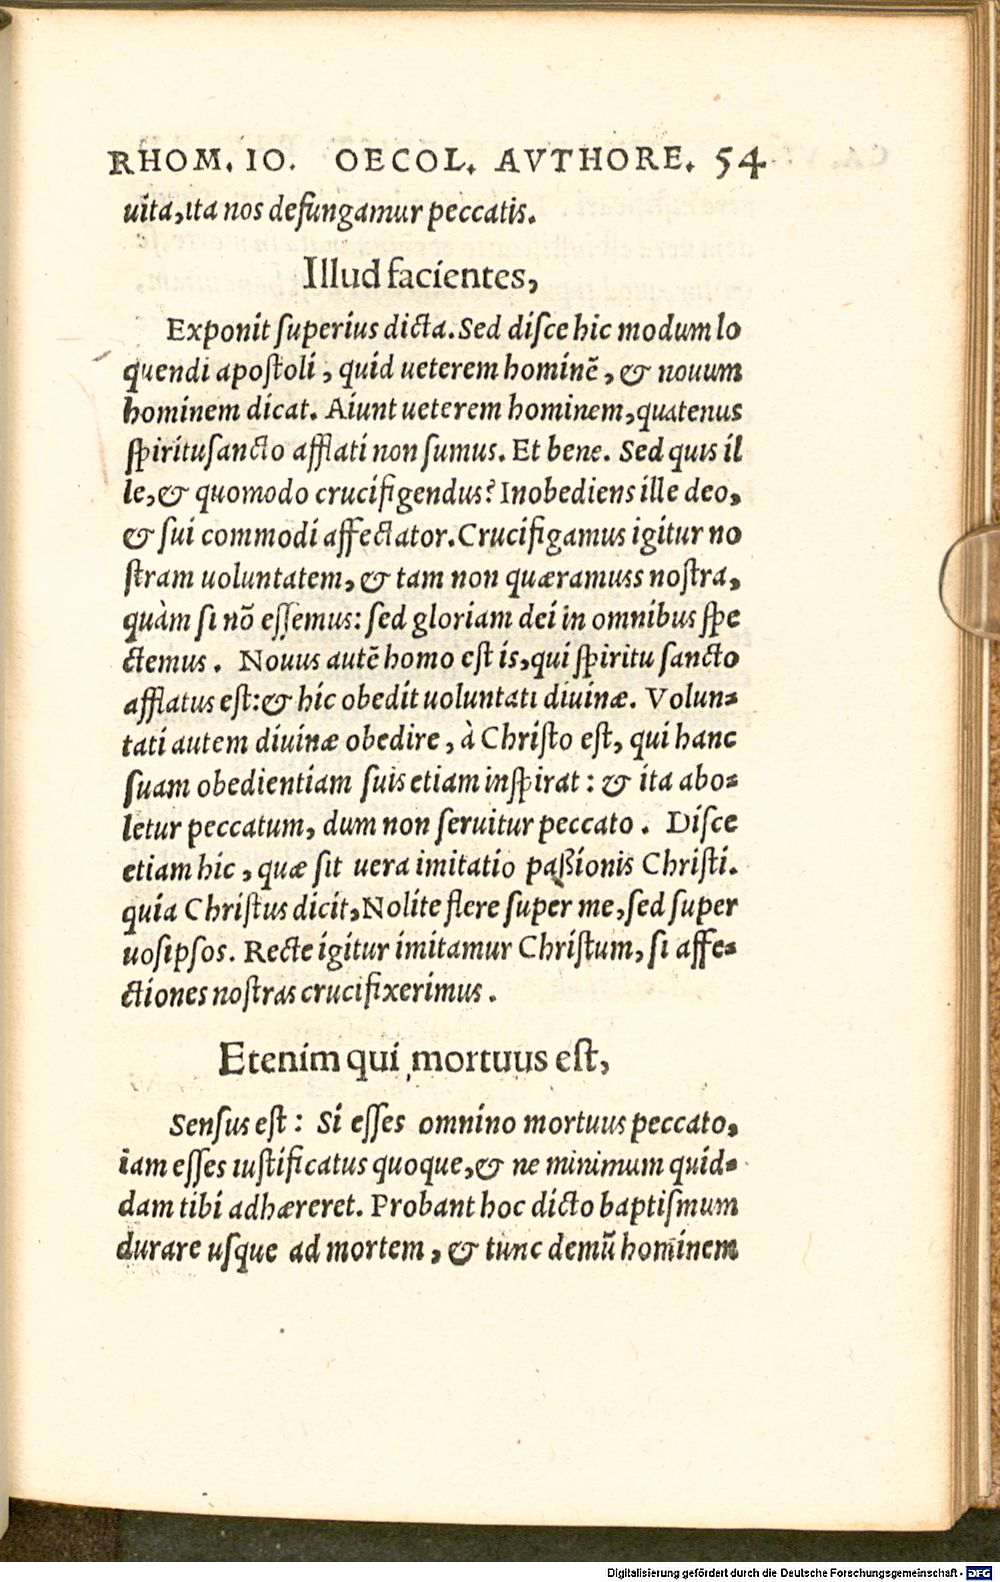 RHOM. IO. OECOL. AVTHORE. 54
uita, ita nos defungamur peccatis.
Illud facientes,
Exponit superius dicta. Sed disce hic modum lo
quendi apostoli, quid ueterem hominẽ, & nouum
hominem dicat. Aiunt ueterem hominem, quatenus
spiritusancto afflati non sumus. Et bene. Sed quis il
le, & quomodo crucifigendus? Inobediens ille deo,
& sui commodi affectator. Crucifigamus igitur no
stram uoluntatem, & tam non quæramuss nostra,
quàm si nõ essemus: sed gloriam dei in omnibus spe
ctemus. Nouus autẽ homo est is, qui spiritu sancto
afflatus est: & hic obedit uoluntati diuinæ. Volun-
tati autem diuinæ obedire, à Christo est, qui hanc
suam obedientiam suis etiam inspirat: & ita abo-
letur peccatum, dum non seruitur peccato. Disce
etiam hic, quæ sit uera imitatio paßionis Christi.
quia Christus dicit, Nolite flere super me, sed super
uosipsos. Recte igitur imitamur Christum, si affe-
ctiones nostras crucifixerimus.
Etenim qui mortuus est,
Sensus est: Si esses omnino mortuus peccato,
iam esses iustificatus quoque, & ne minimum quid-
dam tibi adhæreret. Probant hoc dicto baptismum
durare usque ad mortem, & tunc demũ hominem
Digitalisierung gefördert durch die Deutsche Forschungsgemeinschaft - DFG